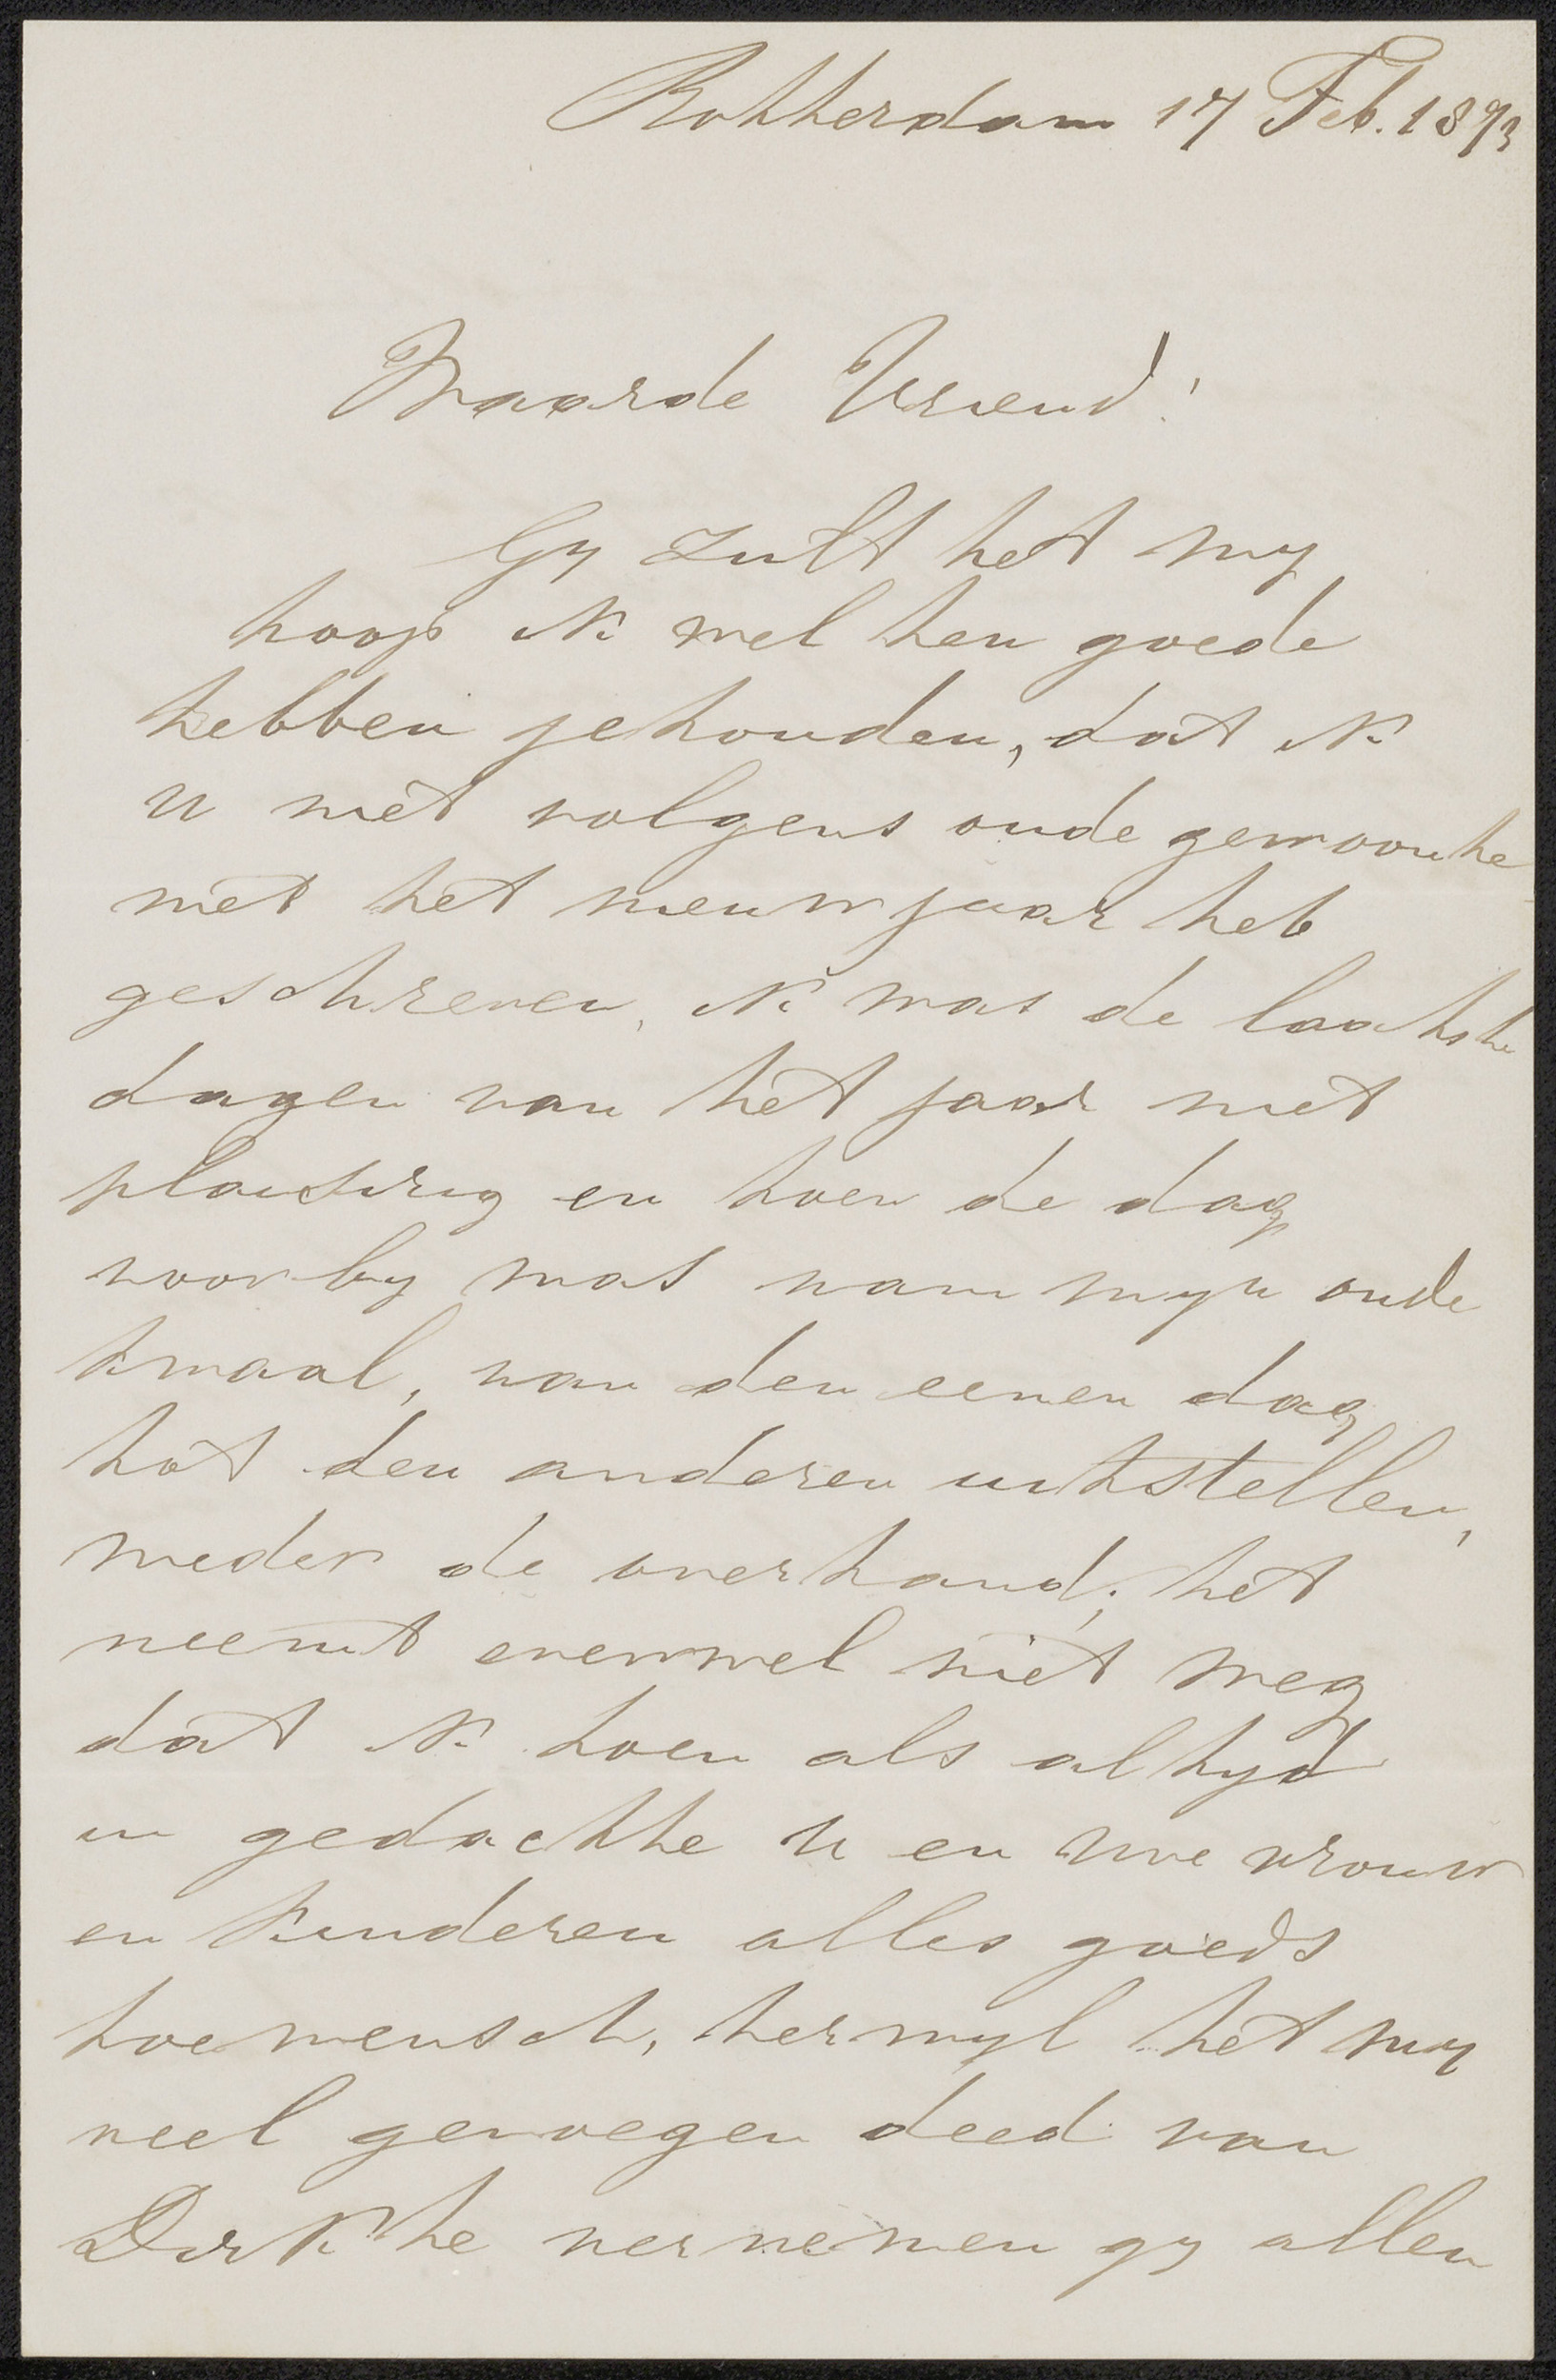 Rotterdam 17 Feb. 1893
Waarde Vriend!
Gy zult het my
hoop ik wel ten goede
hebben gehouden, dat ik
u niet volgens oude gewoonte
met het nieuwjaar heb
geschreven, ik was de laatste
dagen van het jaar niet
plaisirig en toen de dag
voorby was nam myn oude
kwaal, van den eenen dag
tot den anderen uitstellen,
weder de overhand; het
neemt evenwel niet weg
dat ik toen als altyd
in gedachte u en uwe vrouw
en kinderen alles goeds
toewensch, terwyl het my
veel genoegen deed van
Dirk te vernemen gy allen